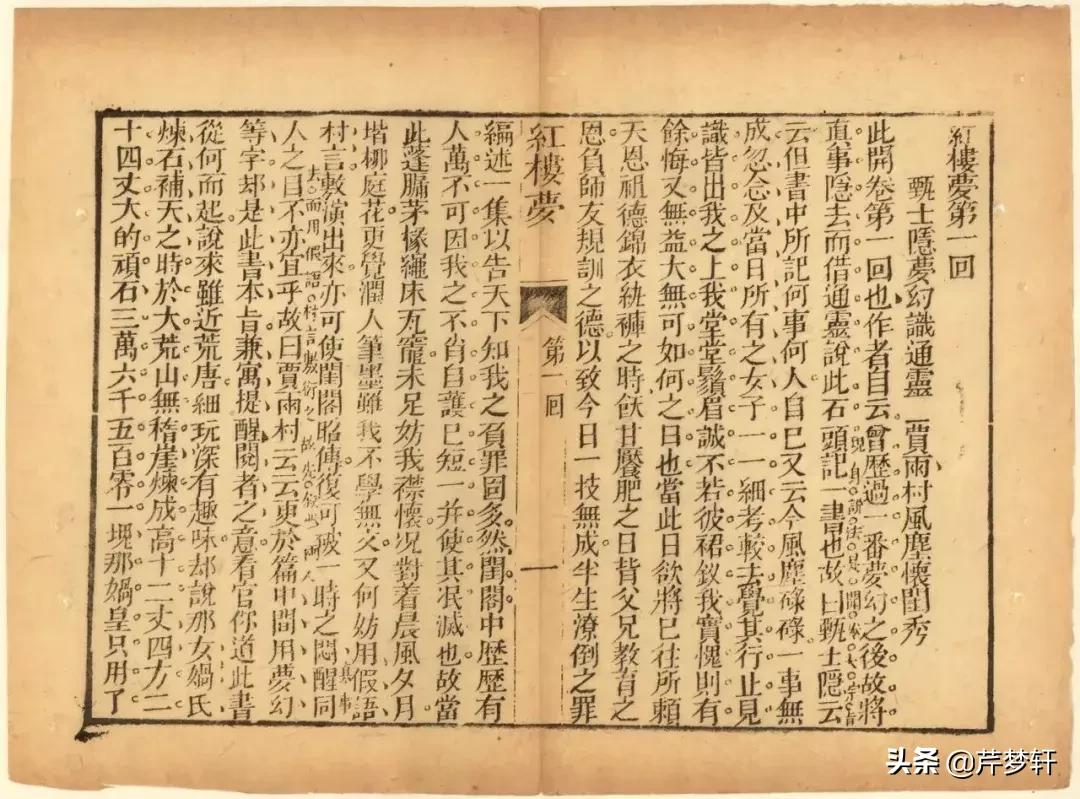 紅樓夢第一回
甄士隱夢幻識通靈 賈雨村風塵懷閨秀
此開卷第一回也作者自云曾歷過一番夢幻之後故將
現身說法是開
真事隱去而借通靈說此石頭記一書也故曰甄士隱云
云但書中所記何事何人自己又云今風塵碌碌一事無
成忽念及當日所有之女子一一細考較去覺其行止見
識皆出我之上我堂堂鬚眉誠不若彼裙釵我實愧則有
餘悔又無益大無可如何之日也當此日欲將已往所賴
天恩祖德錦衣紈褲之時飫甘饜肥之日背父兄教育之
恩負師友規訓之德以致今日一技無成半生潦倒之罪
紅樓夢 第一回 一
編述一集以告天下知我之負罪固多然閨閣中歷歷有
人萬不可因我之不肖自護己短一并使其泯滅也故當
此蓬牖茅椽繩床瓦竈未足妨我襟懷况對着晨風夕月
堦柳庭花更覺潤人筆墨雖我不學無文又何妨用假語
真事
村言敷演出來亦可使閨閣昭傳復可破一時之悶醒同
去而用假語村言敷衍之故先敘此兩人
人之目不亦宜乎故曰賈雨村云云更於篇中間用夢幻
等字却是此書本旨兼寓提醒閱者之意看官你道此書
從何而起說來雖近荒唐細玩深有趣味却說那女媧氏
煉石補天之時於大荒山無稽崖煉成高十二丈四方二
十四丈大的頑石三萬六千五百零一塊那媧皇只用了
头条 @芹梦轩